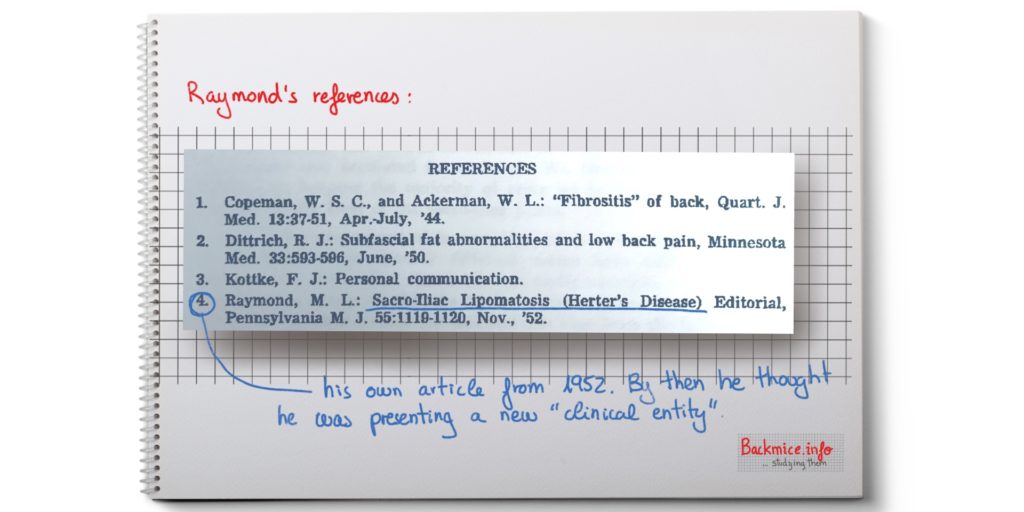 Raymond's references:
REFERENCES
1. Copeman, W. S. C., and Ackerman, W. L.: "Fibrositis" of back, Quart. J.
Med. 13:37-51, Apr.-July, '44.
2. Dittrich, R. J.: Subfascial fat abnormalities and low back pain, Minnesota
Med. 33:593-596, June, '50.
3. Kottke, F. J.: Personal communication.
4. Raymond, M. L.: Sacro-Iliac Lipomatosis (Herter's Disease) Editorial,
Pennsylvania M. J. 55:1119-1120, Nov., '52.
his own article from 1952. By then he thought
he was presenting a new "clinical entity".
Backmice.info
... studying them